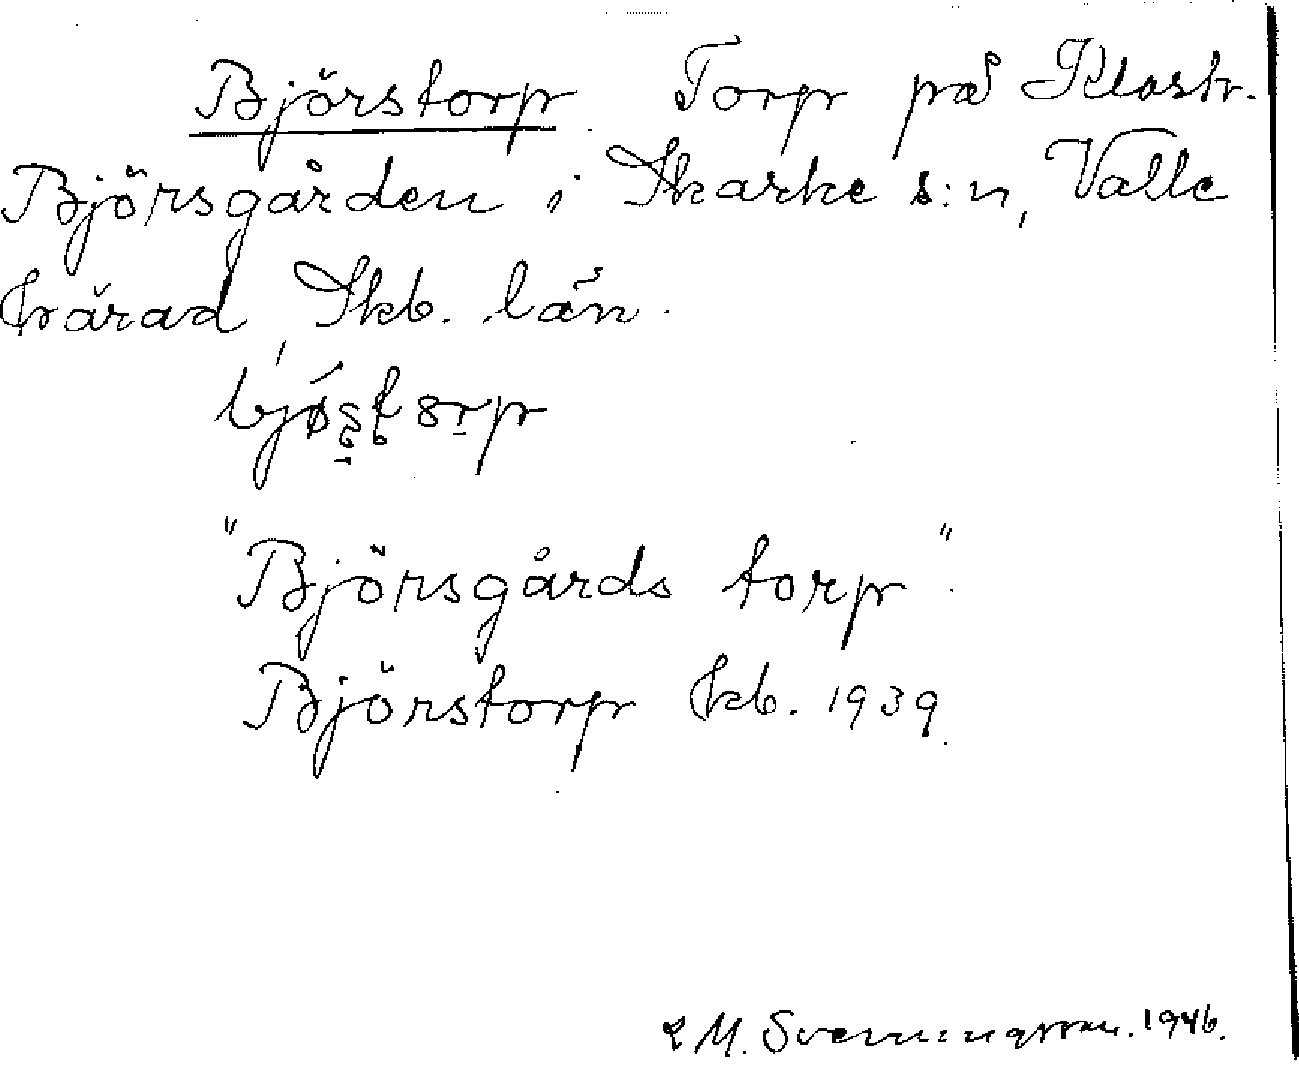 Björstorp Torp på Klostr.
Björsgården i Skarke s:n, Valle
härad Skb. län.
"Björsgårds torp".
Björstorp kb. 1939.
M. Svenningsson. 1946.